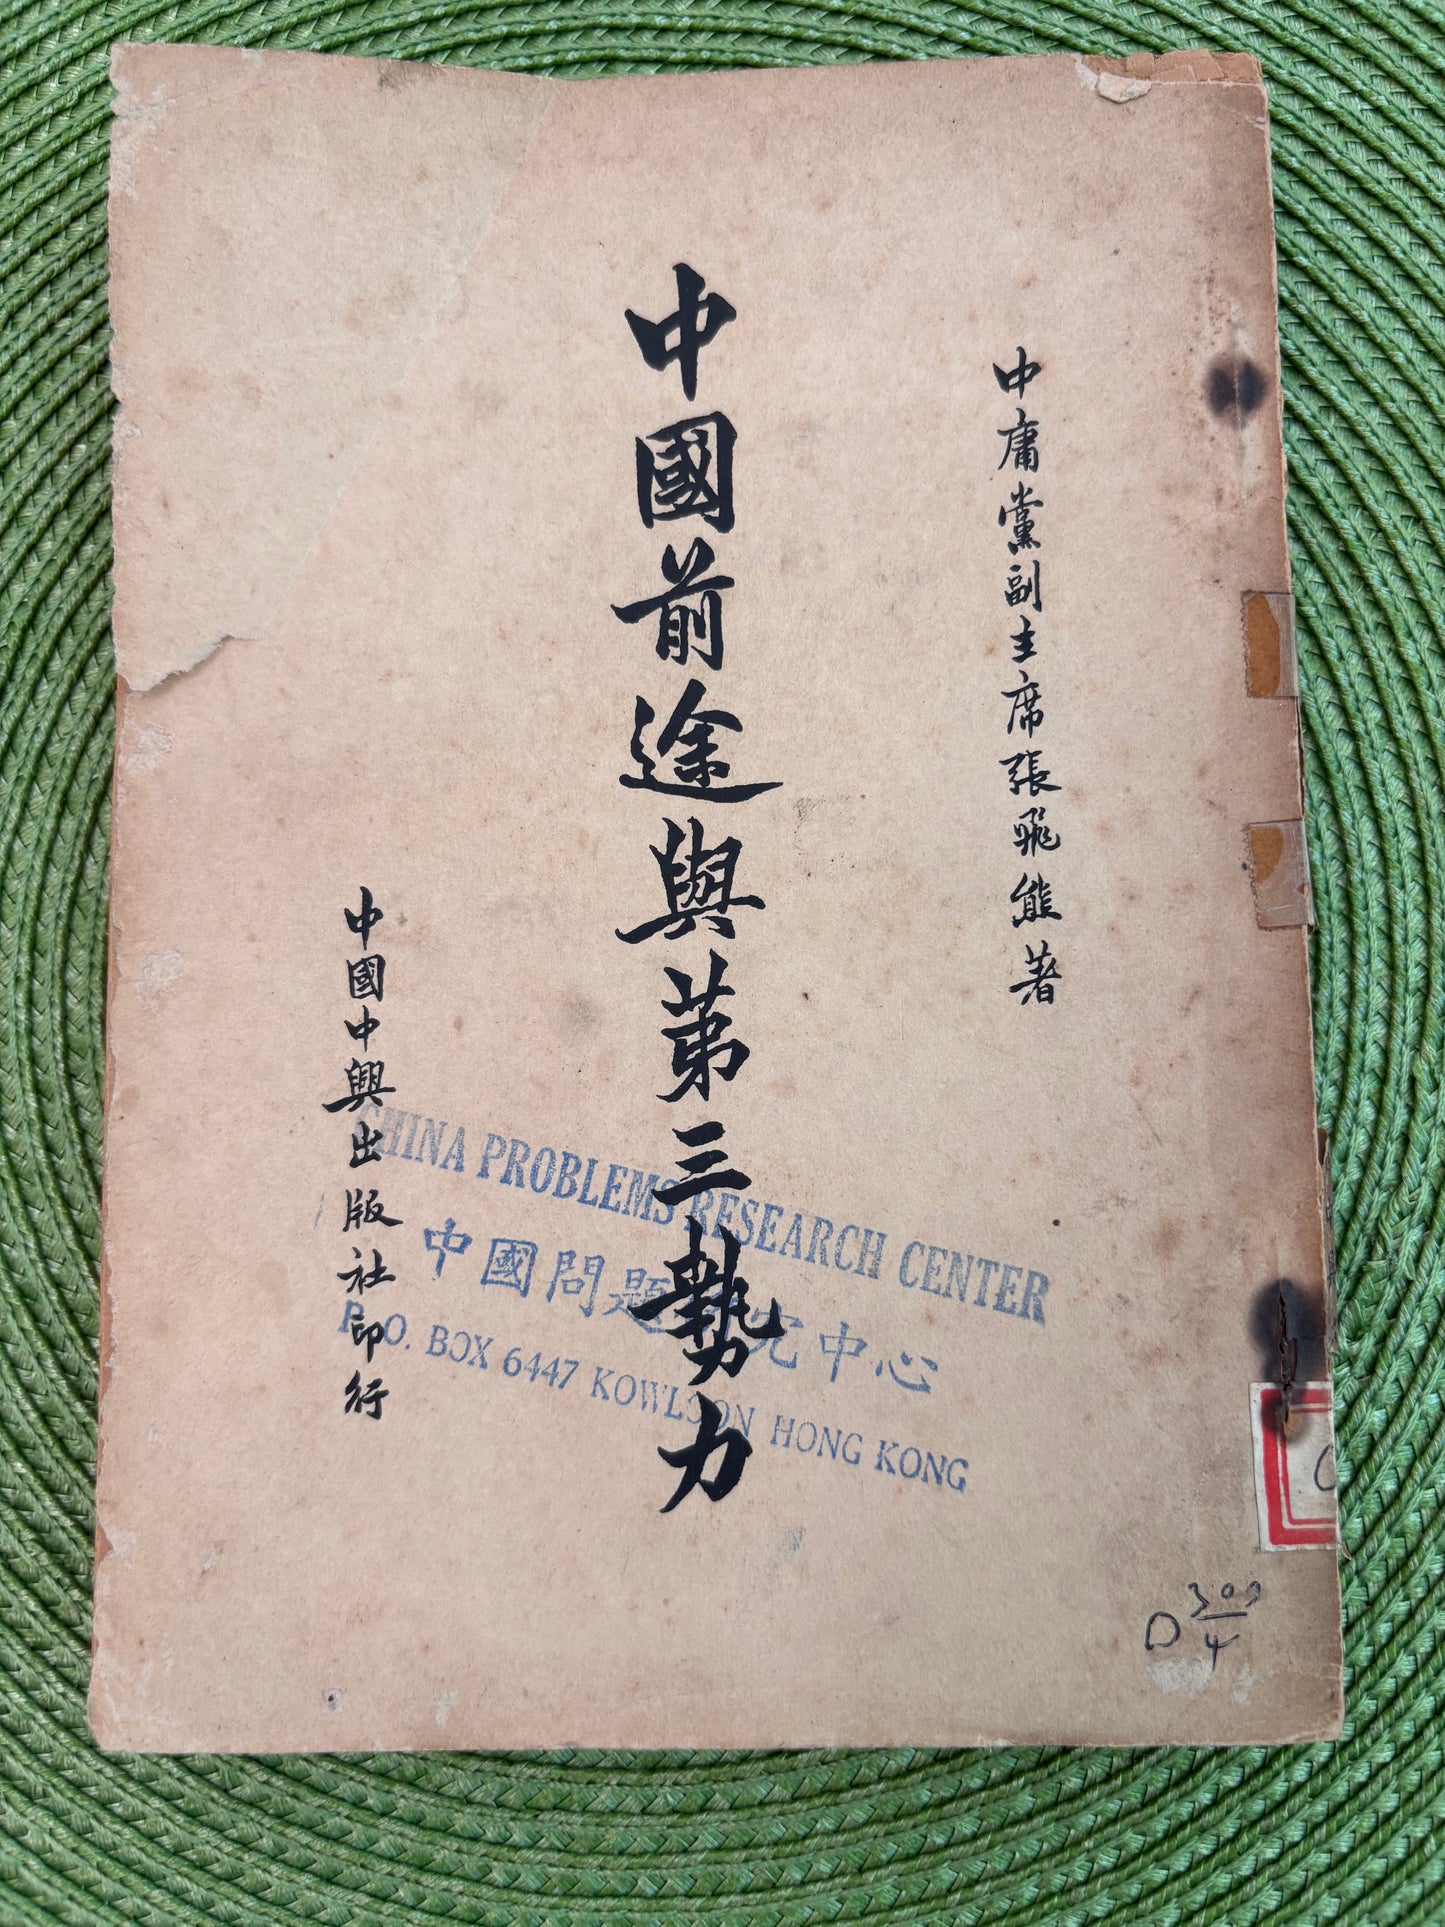 中庸黨副主席張飛熊著
中國前途與第三勢力
中國中興出版社印行
CHINA PROBLEMS RESEARCH CENTER
中國問題研究中心
P. O. BOX 6447 KOWLOON HONG KONG
D
4